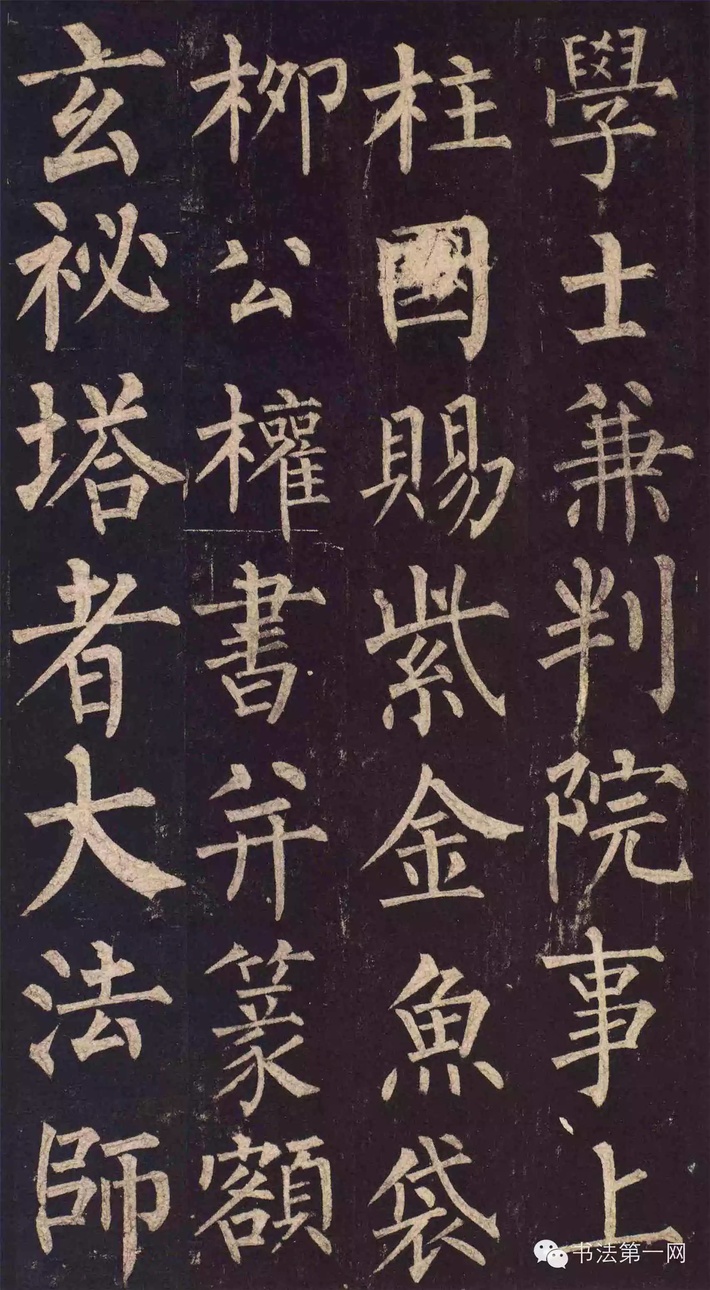 學士兼判院事上
柱國賜紫金魚袋
柳公權書并篆額
玄祕塔者大法師
书法第一网